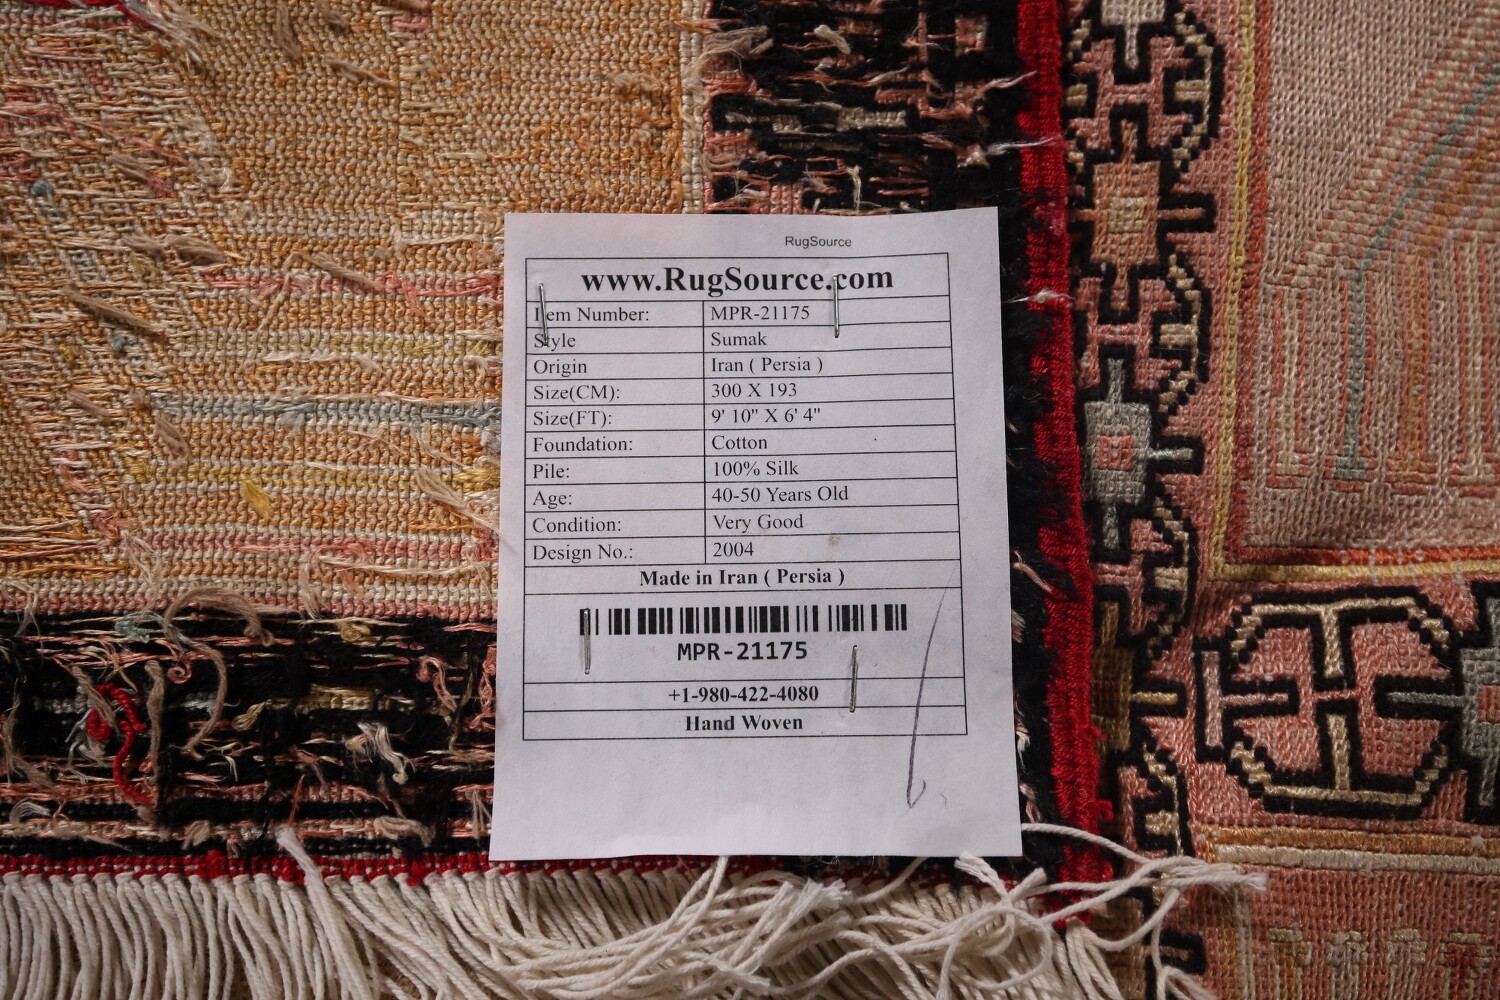 RugSource
www.RugSource.com
Item Number: MPR-21175
Style Sumak
Origin Iran ( Persia )
Size(CM): 300 X 193
Size(FT): 9' 10" X 6' 4"
Foundation: Cotton
Pile: 100% Silk
Age: 40-50 Years Old
Condition: Very Good
Design No.: 2004
Made in Iran ( Persia )
MPR-21175
+1-980-422-4080
Hand Woven